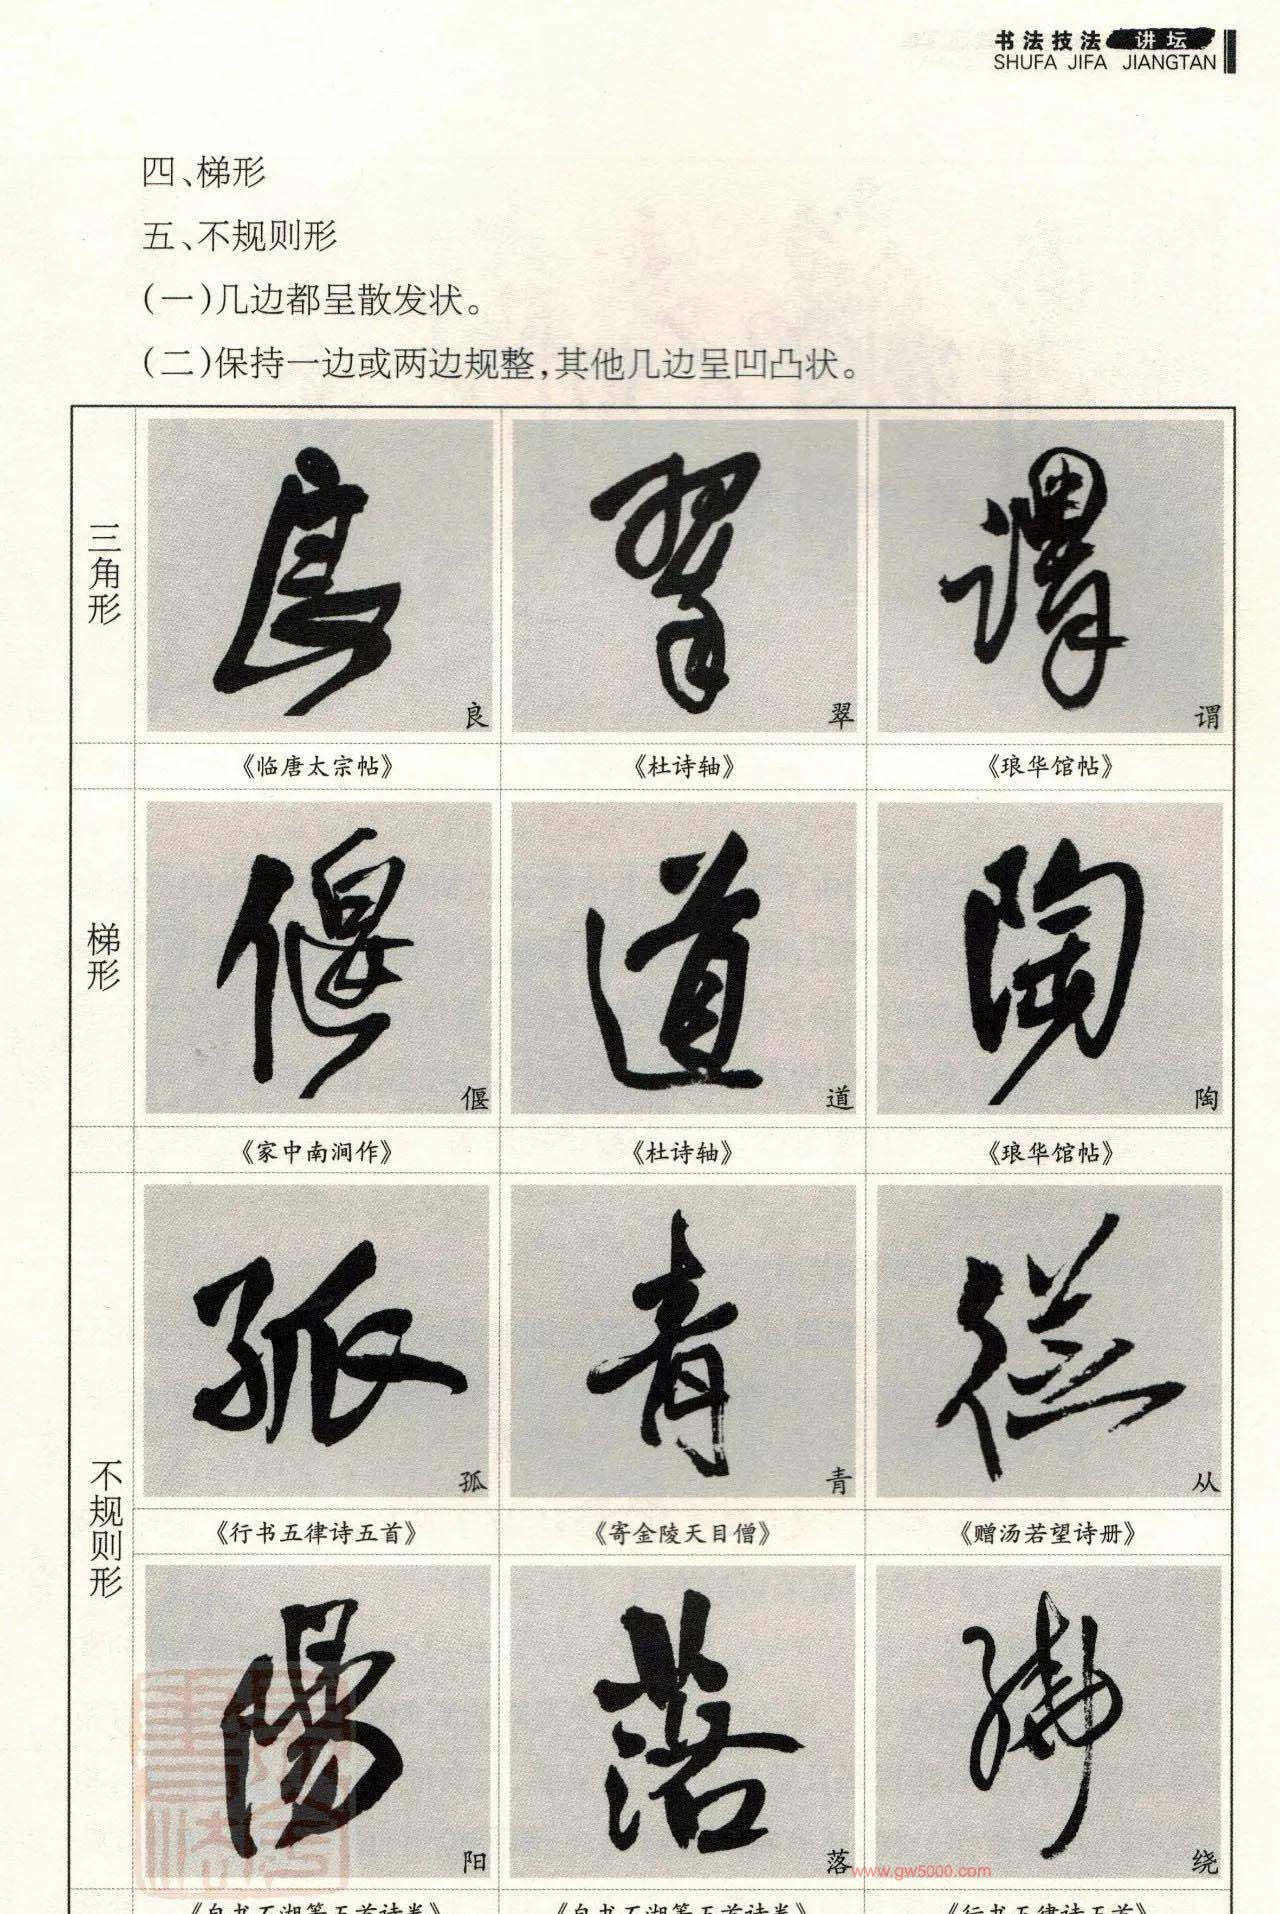 书法技法 讲坛
SHUFA JIFA JIANGTAN
四、梯形
五、不规则形
(一)几边都呈散发状。
(二)保持一边或两边规整,其他几边呈凹凸状。
三角形
良 翠 谓
《临唐太宗帖》 《杜诗轴》 《琅华馆帖》
梯形
偃 道 陶
《家中南涧作》 《杜诗轴》 《琅华馆帖》
不规则形
孤 青 从
《行书五律诗五首》 《寄金陵天目僧》 《赠汤若望诗册》
阳 落 绕
www.gw5000.com
《自书石湖等五首诗卷》 《自书石湖等五首诗卷》 《行书五律诗五首》